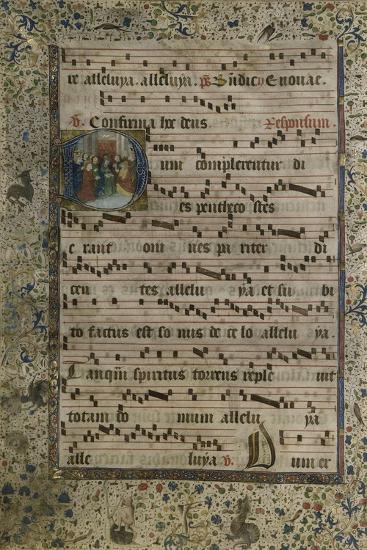 re alleluya. alleluya. ps Bndicy Enouae.
v. Confirma hoc deus Responsum.
Dum complerentur di
es penthecostes
e rant om nes pa riter di
cen tes allelu ya et su bi
to factus est so nus de ce lo allelu ya.
Tanqm spiritus torrens reple uit
totam do mum allelu ya
alle luya v. Dum er